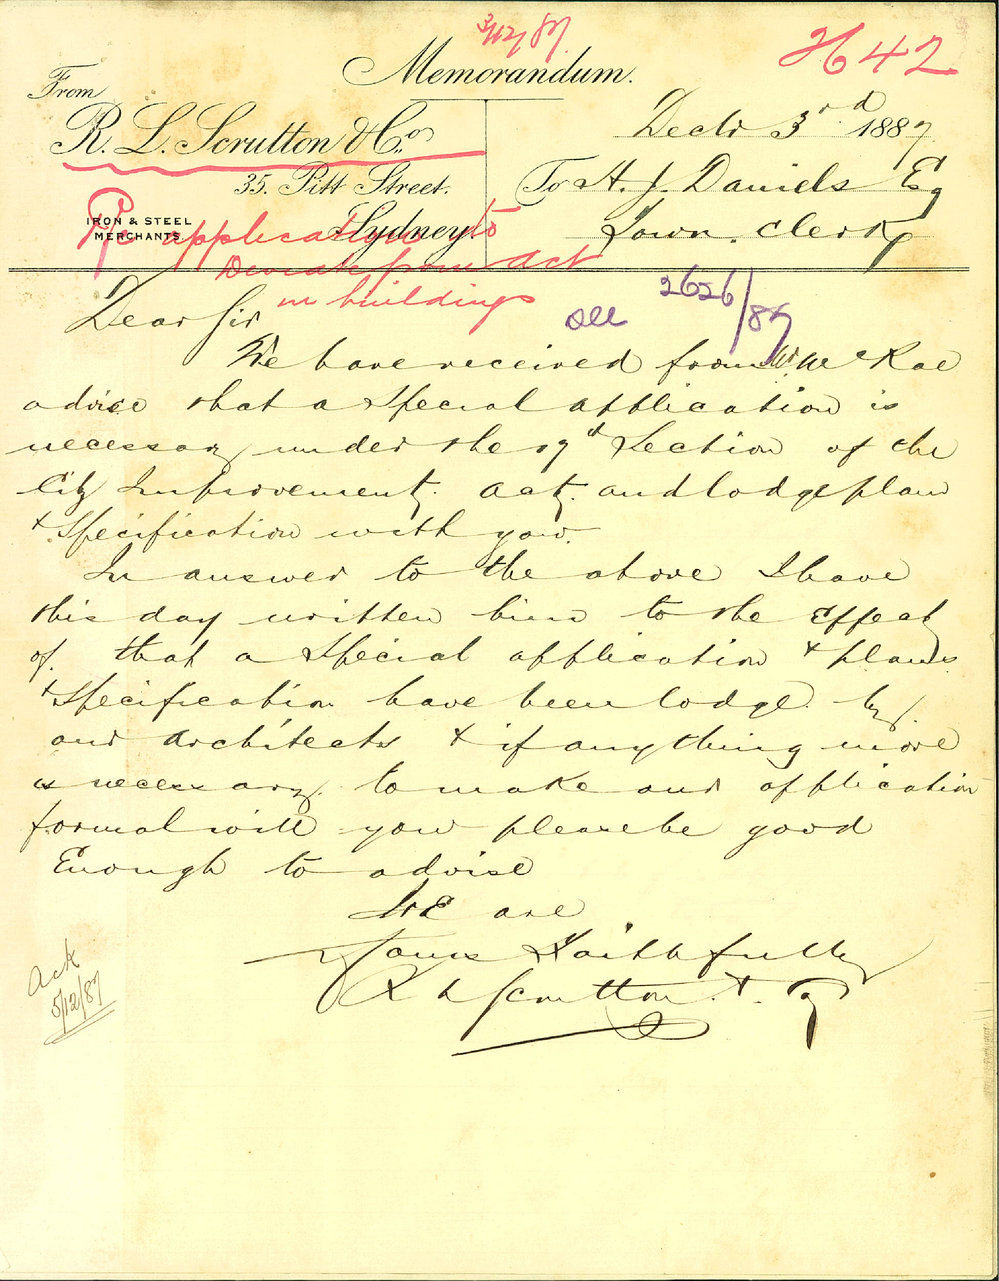 3/12/87.
2642
Memorandum.
From
R. L. Scrutton & Co.
35. Pitt Street.
Sydney
IRON & STEEL
MERCHANTS
Decbr 3rd 1887.
To H. J. Daniels Esq
Town Clerk
Re application to
Deviate from Act
in buildings
See 2626/87
Dear Sir
We have received from Mr McRae
advice that a Special application is
necessary under the 19th Section of the
City Improvement Act. and lodge plans
& Specification with you.
In answer to the above I have
this day written him to the Effect
of. that a Special application & plans
& Specification have been lodge by.
our Architects & if anything more
is necessary. to make our application
formal will you please be good
Enough to advise
We are
Yours Faithfully
R L Scrutton & Co
Ack
5/12/87